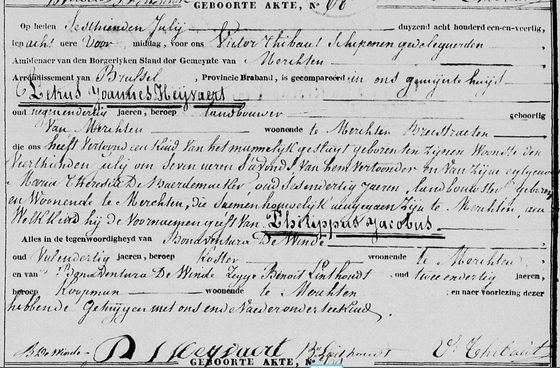 GEBOORTE AKTE, N° 60
Op heden Sesthienden July duyzend acht honderd een-en-veertig,
ten acht uere voor middag, voor ons Victor Thibaut Schepenen gedelegueerden
Ambtenaer van den Borgerlyken Stand der Gemeynte van Merchten
Arrondissement van Brussel, Provincie Braband, is gecompareerd in ons gemeynte huys
Petrus Joannes Heyvaert
oud negenendertig jaeren, beroep Landbouwer geboortig
van Merchten woonende te Merchten Breestraeten
die ons heeft vertoond een kind van het mannelyk geslagt geboren ten zynen woonste den
Vierthienden july om seven ueren s'avonds, van hem vertoonder en van zyne
Maria Theresia De Baerdemaeker, oud Sesendertig jaeren, landbouwster
en woonende te Merchten, die saemen houwelyk aengegaen zyn te Merchten, aen
Welk kind hy de voornaemen geeft van Philippus Jacobus
Alles in de tegenwoordigheyd van Bonaventura De Winde
oud jaeren, beroep Koster te Merchten
en van Benoit Linthoudt, oud tweeendertig jaeren,
beroep Koopman woonende te Merchten ; en naer voorlezing dezer
hebbende Getuygen met ons ende Vaeder onderteekend
B De Winde P J Heyvaert B Linthoudt V. Thibaut
GEBOORTE AKTE, N°